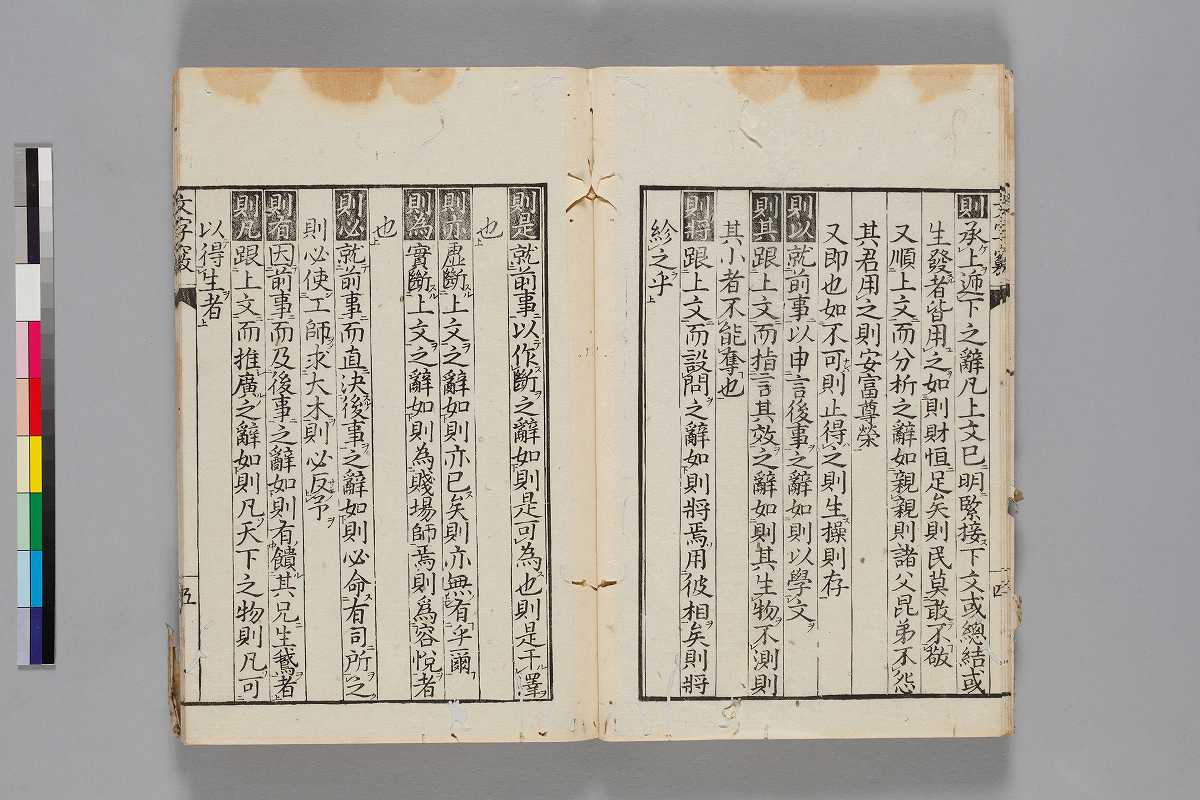 則承上遞下之辭凡上文已明緊接下文或總結或
生發者皆用之如則財恒足矣則民莫敢不敬
又順上文而分析之辭如親親則諸父昆弟不怨
其君用之則安富尊榮
又即也如不可則止得之則生操則存
則以就前事以申言後事之辭如則以學文
則其跟上文而指言其效之辭如則其生物不測則
其小者不能奪也
則將跟上文而設問之辭如則將焉用彼相矣則將
紾之乎
則是就前事以作斷之辭如則是可為也則是干澤
也
則亦虛斷上文之辭如則亦已矣則亦無有乎爾
則為實斷上文之辭如則為賤場師焉則為容悅者
也
則必就前事而直決後事之辭如則必命有司所之
則必使工師求大木則必反予
則有因前事而及後事之辭如則有饋其兄生鵝者
則凡跟上文而推廣之辭如則凡天下之物則凡可
以得生者
四
五